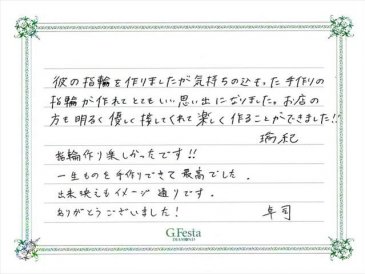 彼の指輪を作りましたが気持ちのこもった手作りの
指輪が作れてとてもいい思い出になりました。お店の
方も明るく優しく接してくれて楽しく作ることができました!!
瑞紀
指輪作り楽しかったです!!
一生ものを手作りできて最高でした。
出来映えもイメージ通りです。
ありがとうございました!
卓司
G.Festa